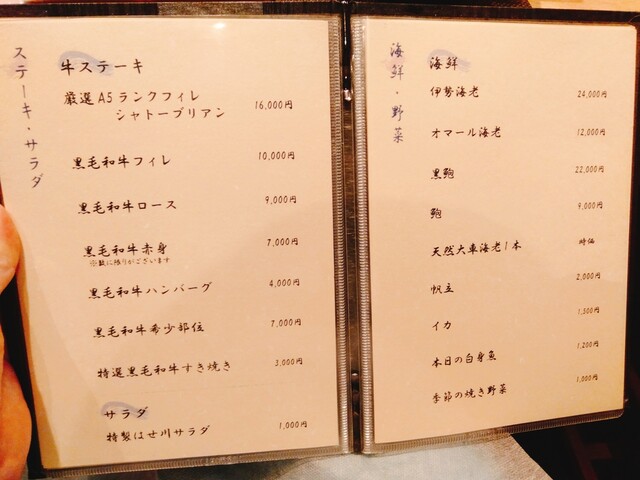 ステーキ・サラダ
牛ステーキ
厳選A5ランクフィレ
シャトーブリアン 16,000円
黒毛和牛フィレ 10,000円
黒毛和牛ロース 9,000円
黒毛和牛赤身 7,000円
※数に限りがございます
黒毛和牛ハンバーグ 4,000円
黒毛和牛希少部位 7,000円
特選黒毛和牛すき焼き 3,000円
サラダ
特製はせ川サラダ 1,000円
海鮮・野菜
海鮮
伊勢海老 24,000円
オマール海老 12,000円
黒鮑 22,000円
鮑 9,000円
天然大車海老1本 時価
帆立 2,000円
イカ 1,500円
本日の白身魚 1,200円
季節の焼き野菜 1,000円